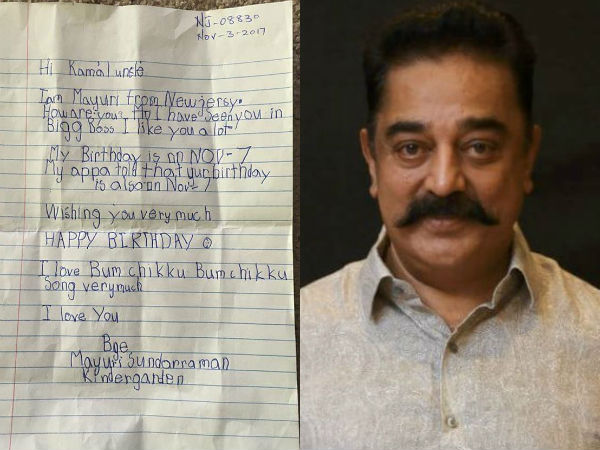 NJ-08830
Nov-3-2017
Hi Kamal unkle
I am Mayuri from New jersy.
How are you? I have seen you in
Bigg Boss I like you a lot
My Birthday is on NOV-7
My appa told that yur birthday
is also on Nov-7
Wishing you very much
HAPPY BIRTHDAY ☺
I love Bum chikku Bum chikku
Song verymuch
I love You
Bye
Mayuri Sundarraman
Kindergarden